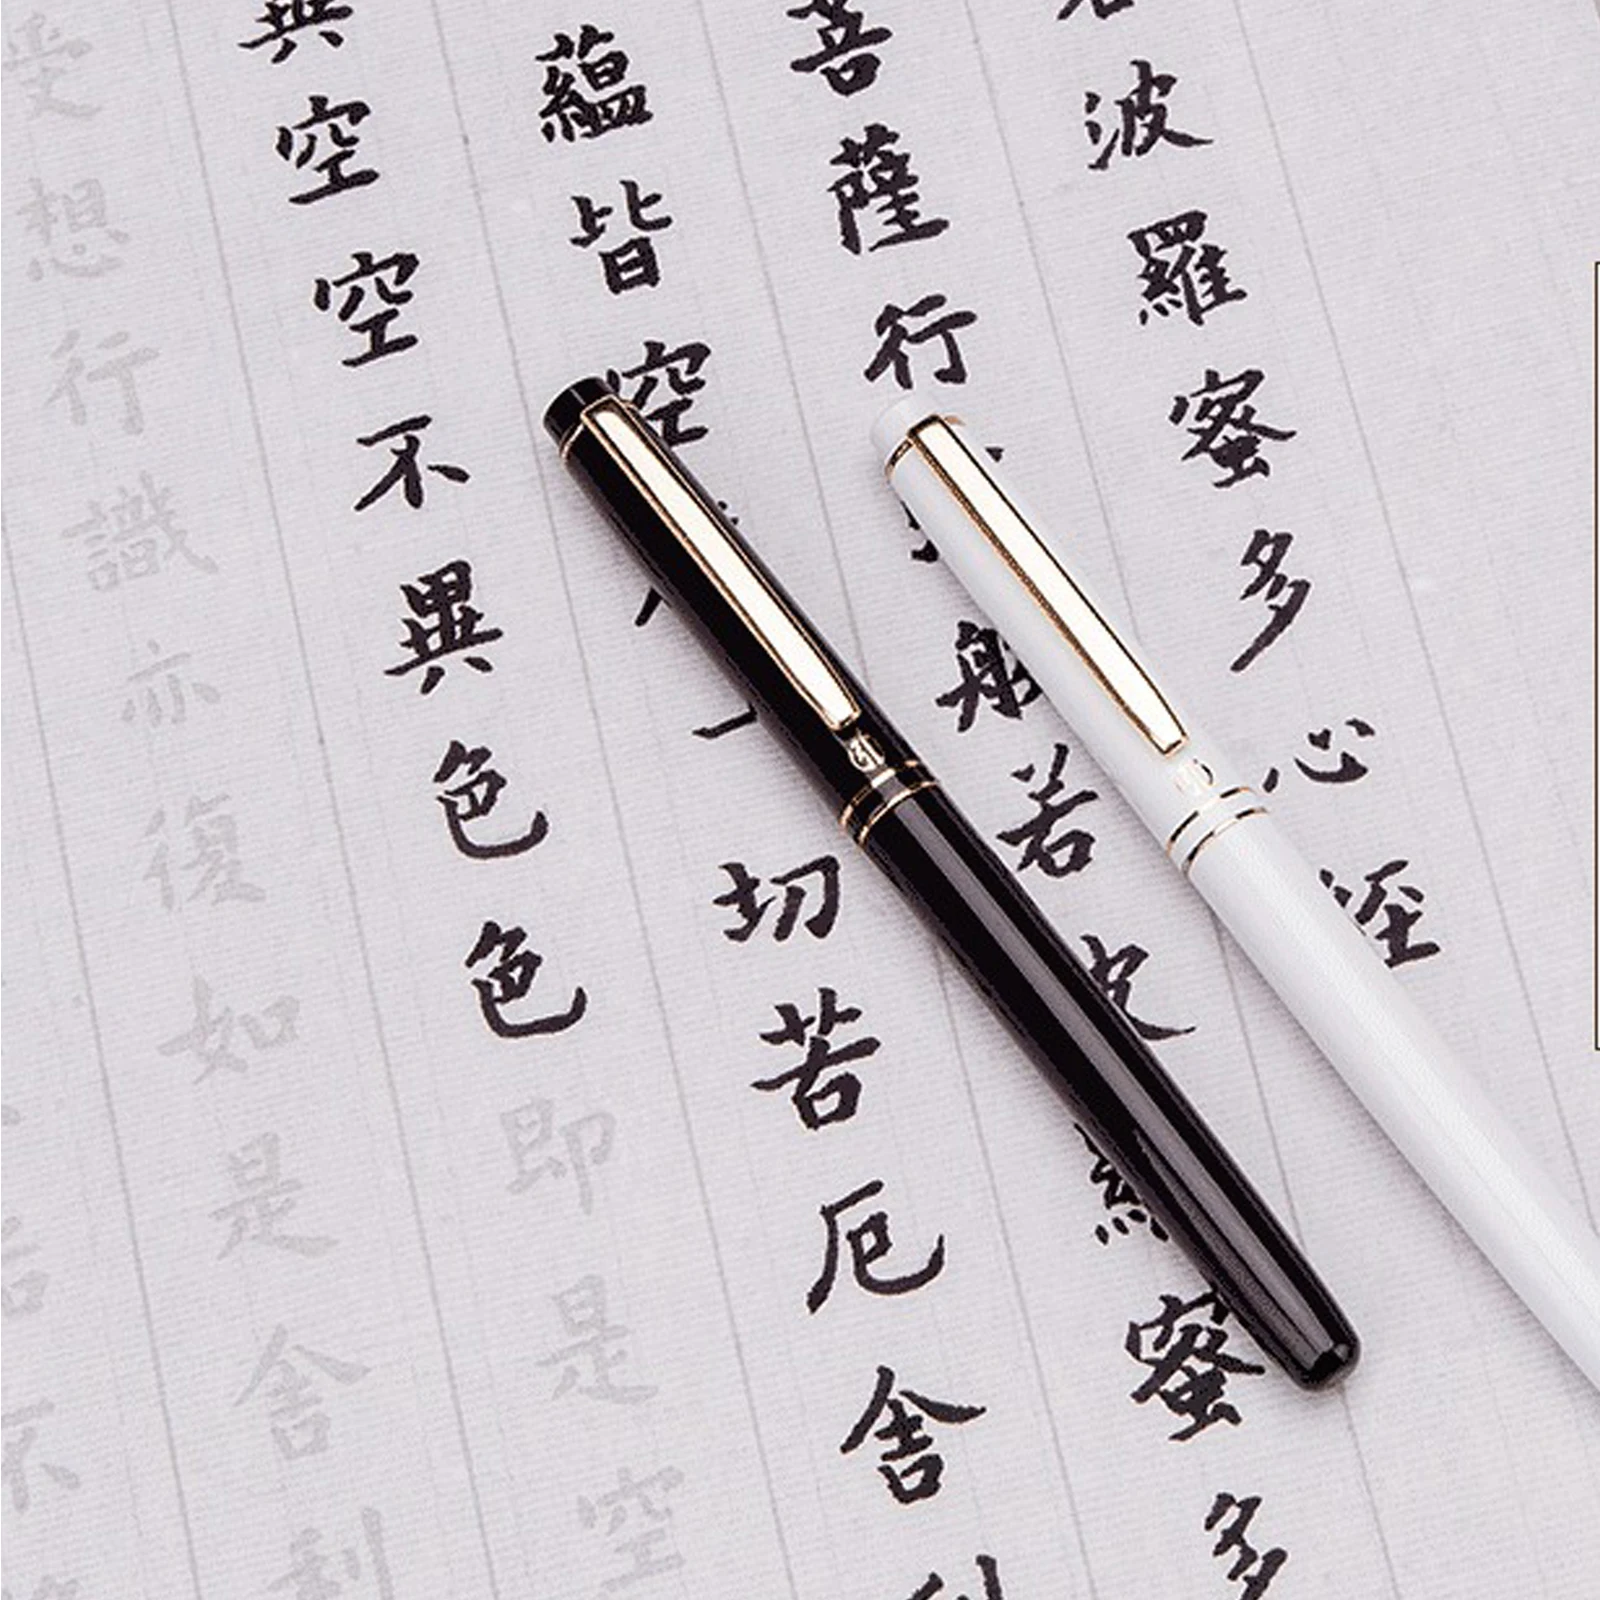 波羅蜜多心經
菩薩行般若波羅蜜多
蘊皆空一切苦厄舍利
異空空不異色色即是空
受想行識亦復如是舍利
不